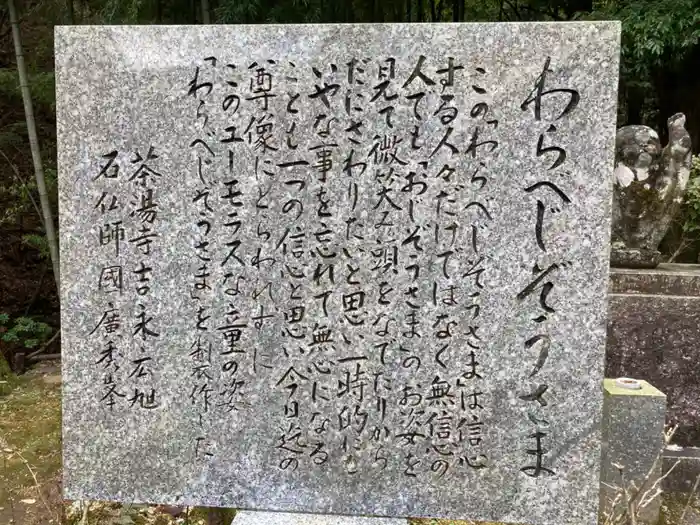 わらべじぞうさま
この「わらべじぞうさま」は信心
する人々だけではなく無信心の
人でも「おじぞうさま」のお姿を
見て微笑み頭をなでたりから
だにさわりたいと思い一時的にも
いやな事を忘れて無心になる
ことも一つの信心と思い今日迄の
尊像にとらわれずに
このユーモラスな童の姿
「わらべじぞうさま」を制作した
茶湯寺吉永石旭
石仏師國廣秀峯